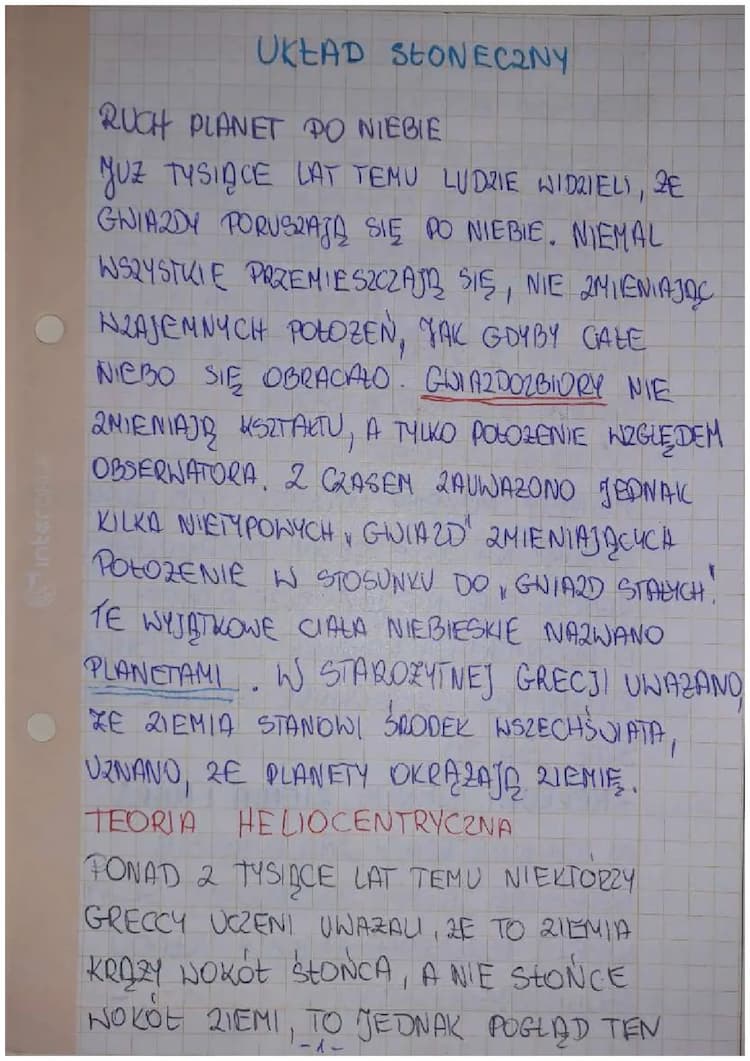 UKŁAD SŁONECZNY
RUCH PLANET PO NIEBIE
JUŻ TYSIĄCE LAT TEMU LUDZIE WIDZIELI, ŻE
GWIAZDY PORUSZAJĄ SIĘ PO NIEBIE. NIEMAL
WSZYSTKIE PRZEMIESZCZAJĄ SIĘ, NIE ZMIENIAJĄC
WZAJEMNYCH POŁOŻEŃ, JAK GDYBY CAŁE
NIEBO SIĘ OBRACAŁO. GWIAZDOZBIORY NIE
ZMIENIAJĄ KSZTAŁTU, A TYLKO POŁOŻENIE WZGLĘDEM
OBSERWATORA. Z CZASEM ZAUWAŻONO JEDNAK
KILKA NIETYPOWYCH „GWIAZD" ZMIENIAJĄCYCH
POŁOŻENIE W STOSUNKU DO „GWIAZD STAŁYCH".
TE WYJĄTKOWE CIAŁA NIEBIESKIE NAZWANO
PLANETAMI. W STAROŻYTNEJ GRECJI UWAŻANO,
ŻE ZIEMIA STANOWI ŚRODEK WSZECHŚWIATA,
UZNANO, ŻE PLANETY OKRĄŻAJĄ ZIEMIĘ.
TEORIA HELIOCENTRYCZNA
PONAD 2 TYSIĄCE LAT TEMU NIEKTÓRZY
GRECCY UCZENI UWAŻALI, ŻE TO ZIEMIA
KRĄŻY WOKÓŁ SŁOŃCA, A NIE SŁOŃCE
WOKÓŁ ZIEMI, TO JEDNAK POGLĄD TEN
-1-